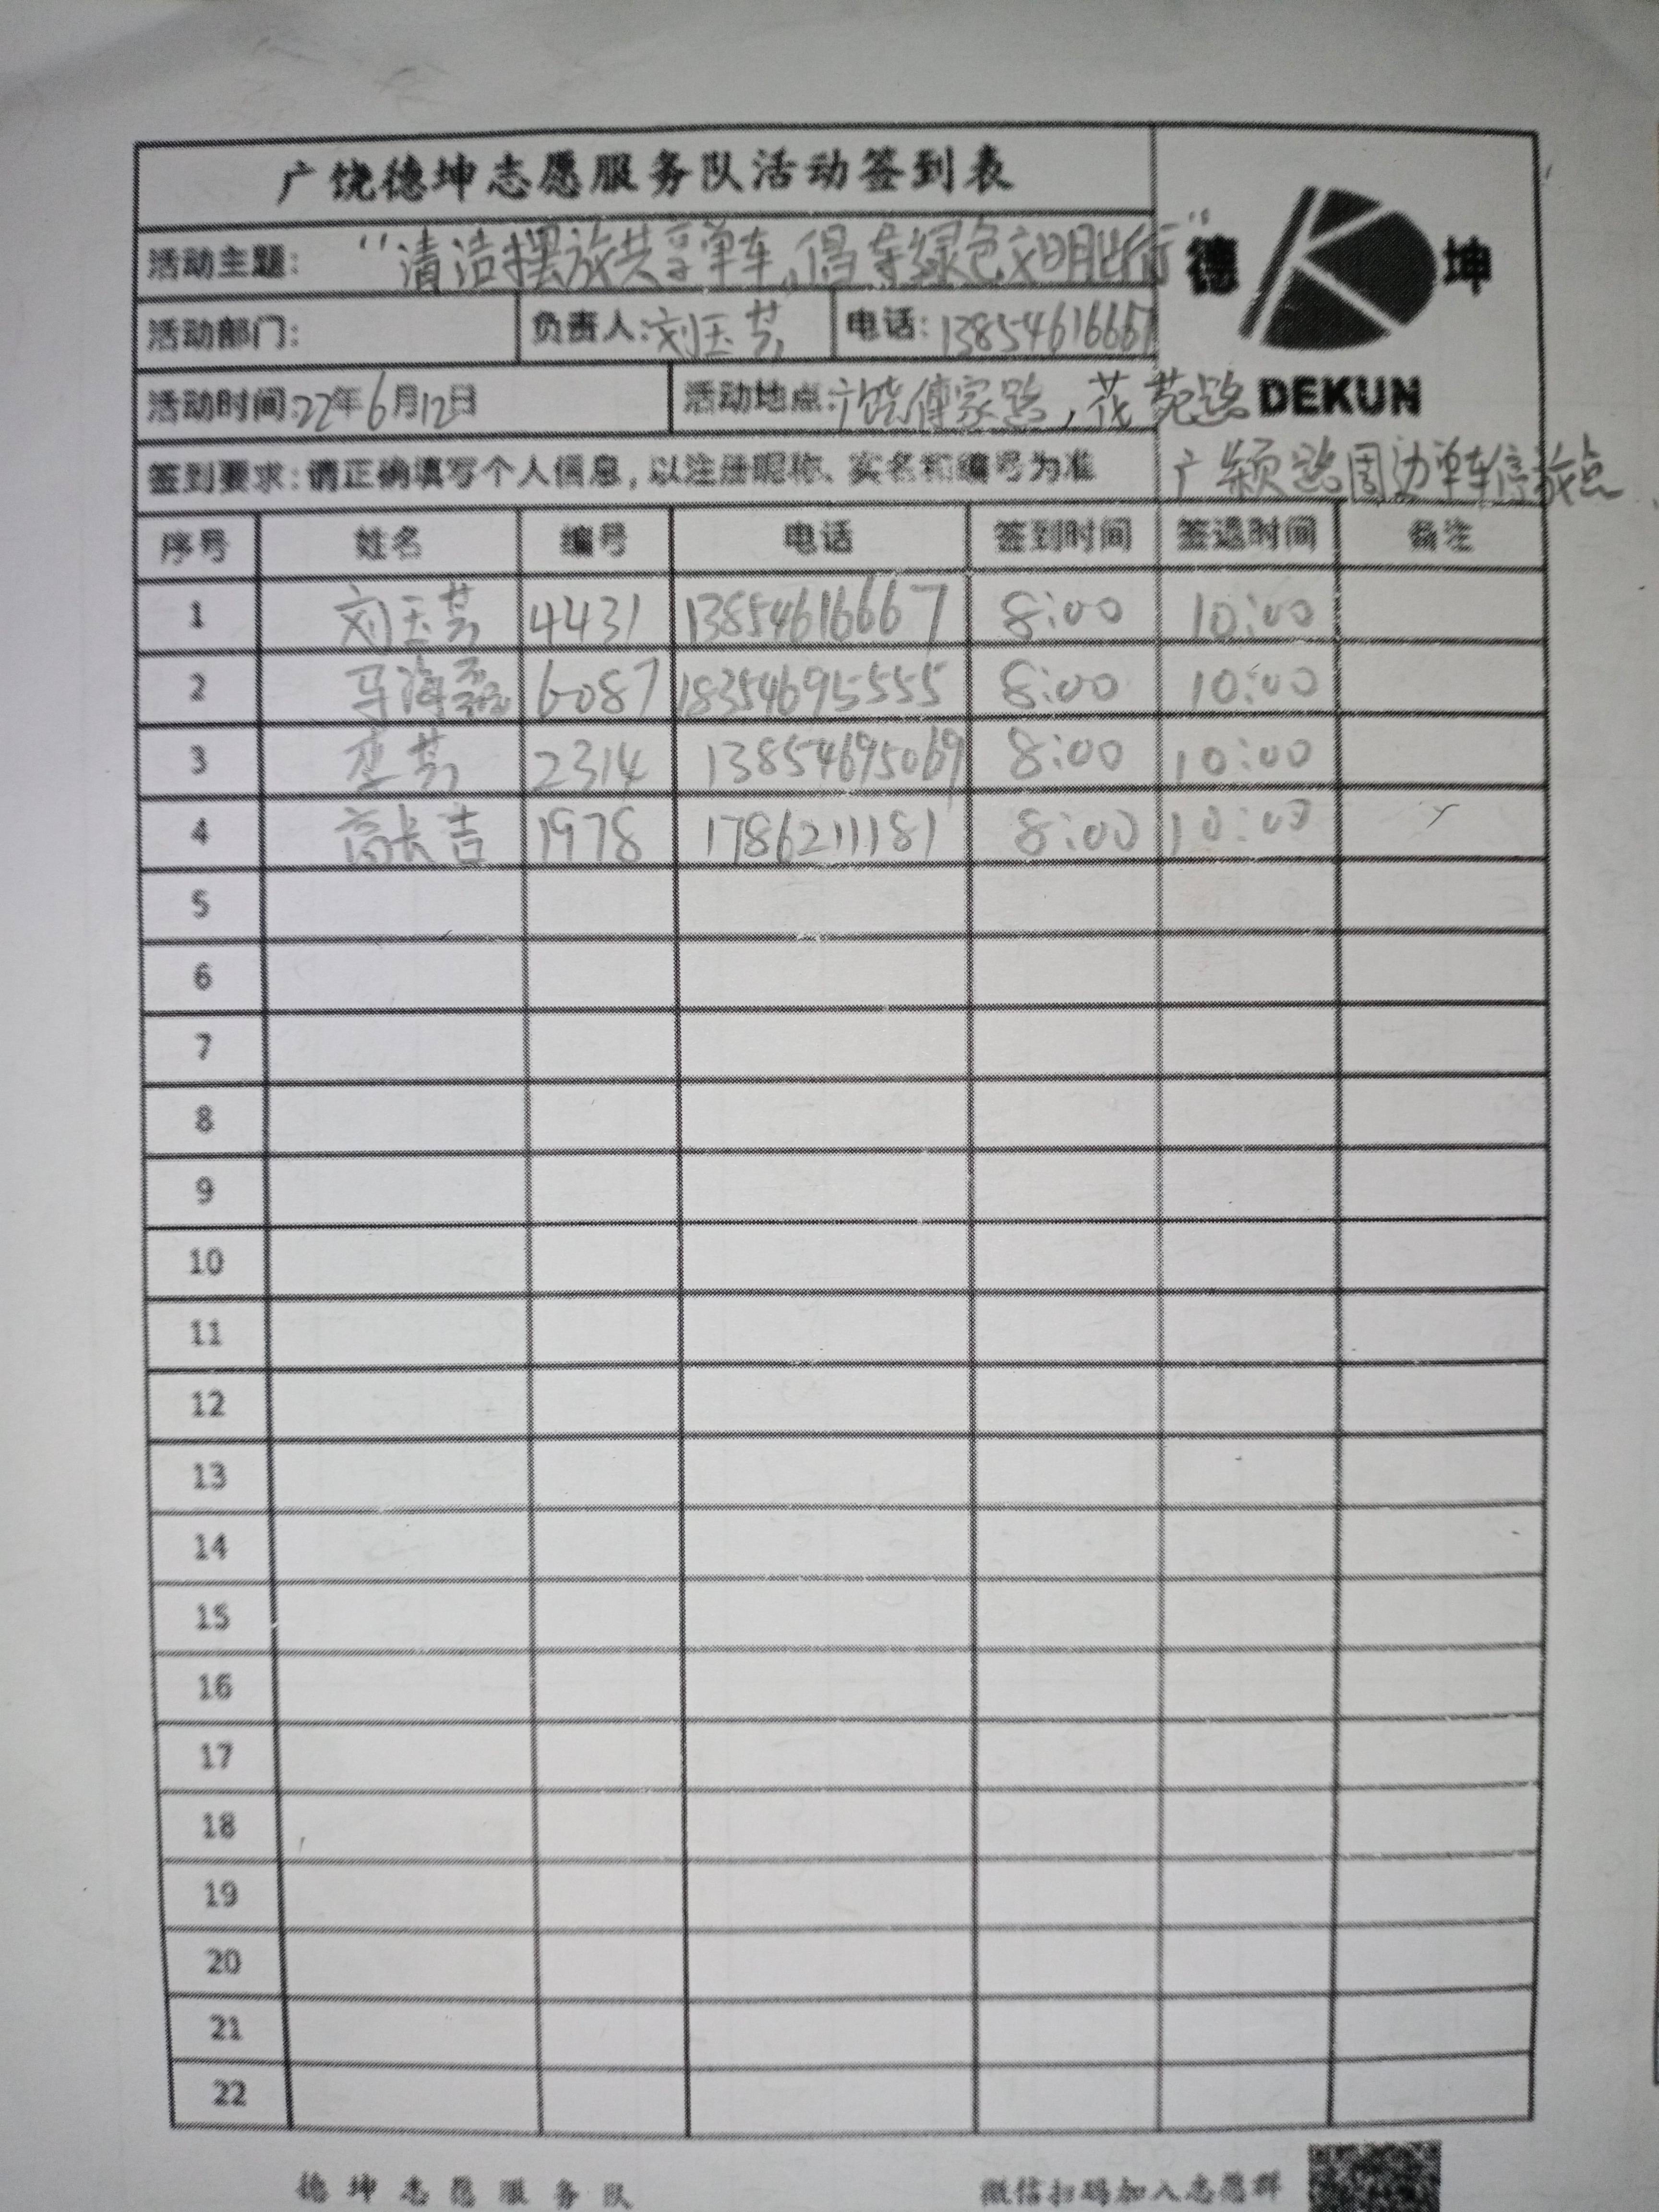 广饶德坤志愿服务队活动签到表
活动主题: “清洁摆放共享单车,倡导绿色文明出行”
德 坤
活动部门: 负责人:刘玉芳 电话:13854616667
活动时间:22年6月12日 活动地点:广饶傅家路,花苑路
DEKUN
签到要求:请正确填写个人信息,以注册昵称、实名和编号为准
广颍路周边单车停放点
序号 姓名 编号 电话 签到时间 签退时间 备注
1 刘玉芳 4431 13854616667 8:00 10:00
2 马海 6087 18354695555 8:00 10:00
3 芳 2314 13854695069 8:00 10:00
4 高长吉 1978 1786211181 8:00 10:00
5
6
7
8
9
10
11
12
13
14
15
16
17
18
19
20
21
22
德坤志愿服务队 微信扫码加入志愿群